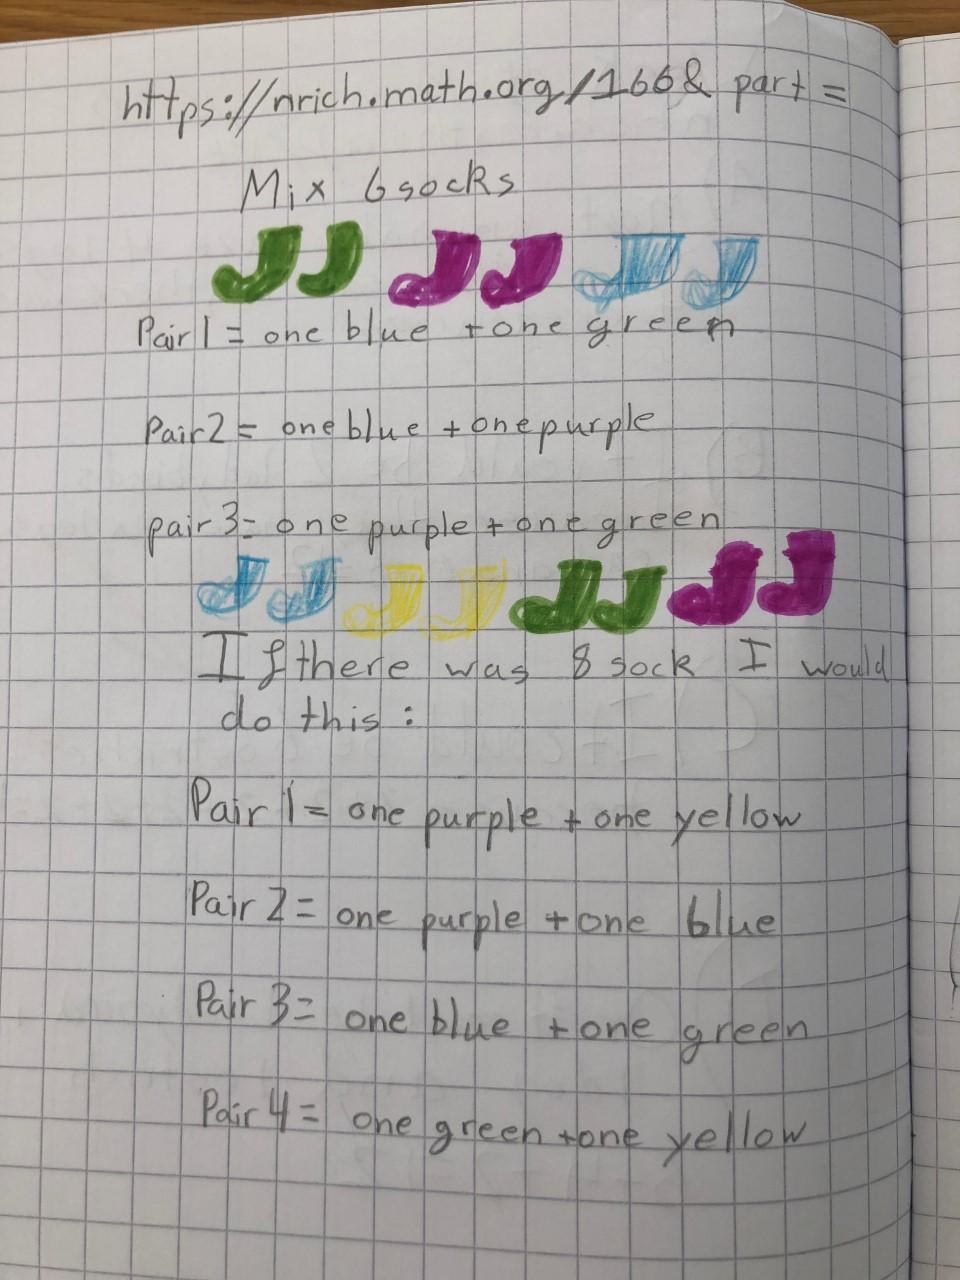 https://nrich.math.org/166& part =
Mix 6 socks
Pair 1 = one blue + one green
Pair 2 = one blue + one purple
pair 3 = one purple + one green
If there was 8 sock I would
do this :
Pair 1 = one purple + one yellow
Pair 2 = one purple + one blue
Pair 3 = one blue + one green
Pair 4 = one green + one yellow